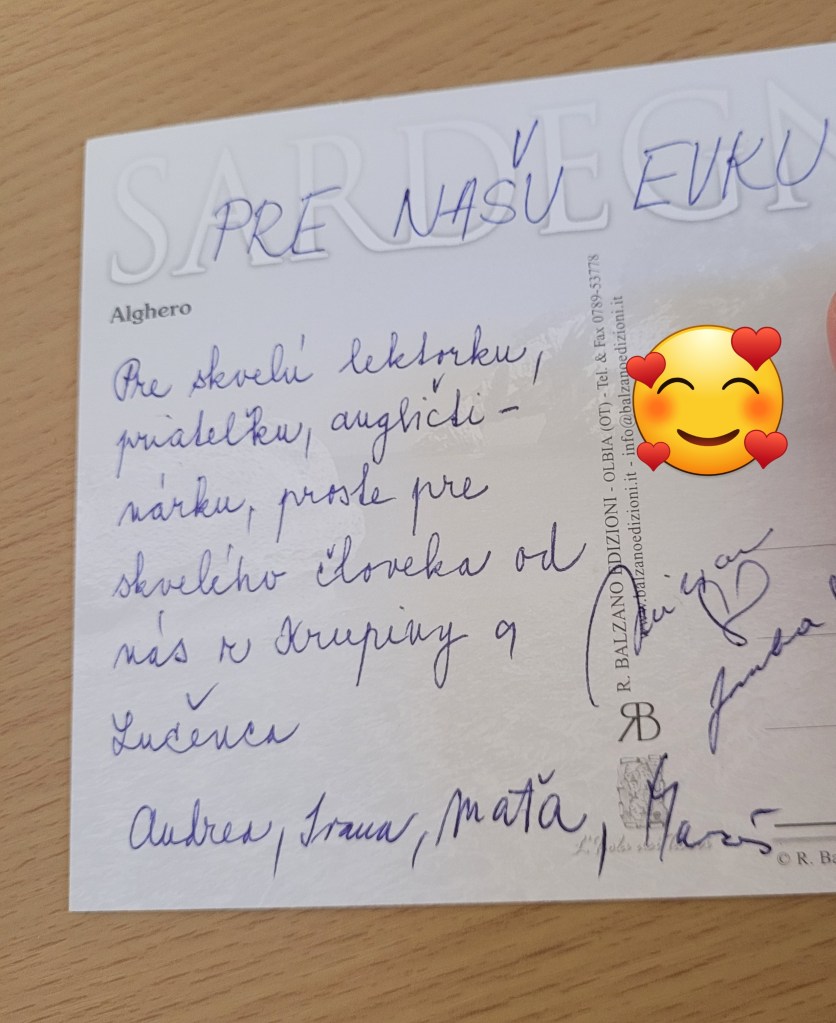 SARDEGN
PRE NAŠU EVKU
Alghero
Pre skvelú lektorku,
priateľku, angličti-
nárku, proste pre
skvelého človeka od
nás z Krupiny a
Lučenca
Andrea, Ivana, Maťa,
R. BALZANO EDIZIONI - OLBIA (OT) - Tel. & Fax 0789-53778
www.balzanoedizioni.it - info@balzanoedizioni.it
RB
© R. Ba